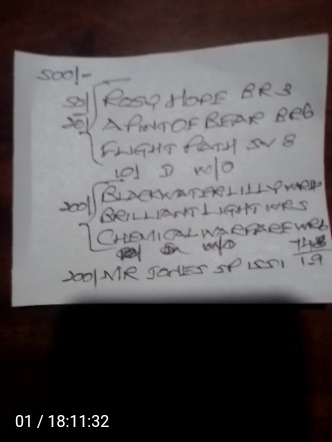 500/-
50/ ROSY HOPE BR 3
20/ A PINT OF BEAR BR6
FLIGHT PATH SV 8
10/ D W/O
200/ BLACKWATER LILLY
BRILLIANT LIGHT WR5
CHEMICAL WARFARE WR6
W/O
200/ MR JONES SP 1551 19
01 / 18:11:32